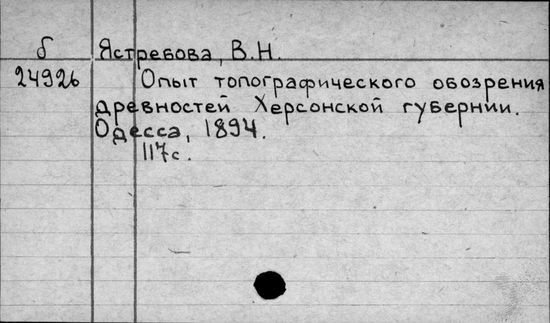 б Ястребова, В.Н.
24926 Опыт топографического обозрения
древностей Херсонской губернии.
Одесса, 1894.
117с.